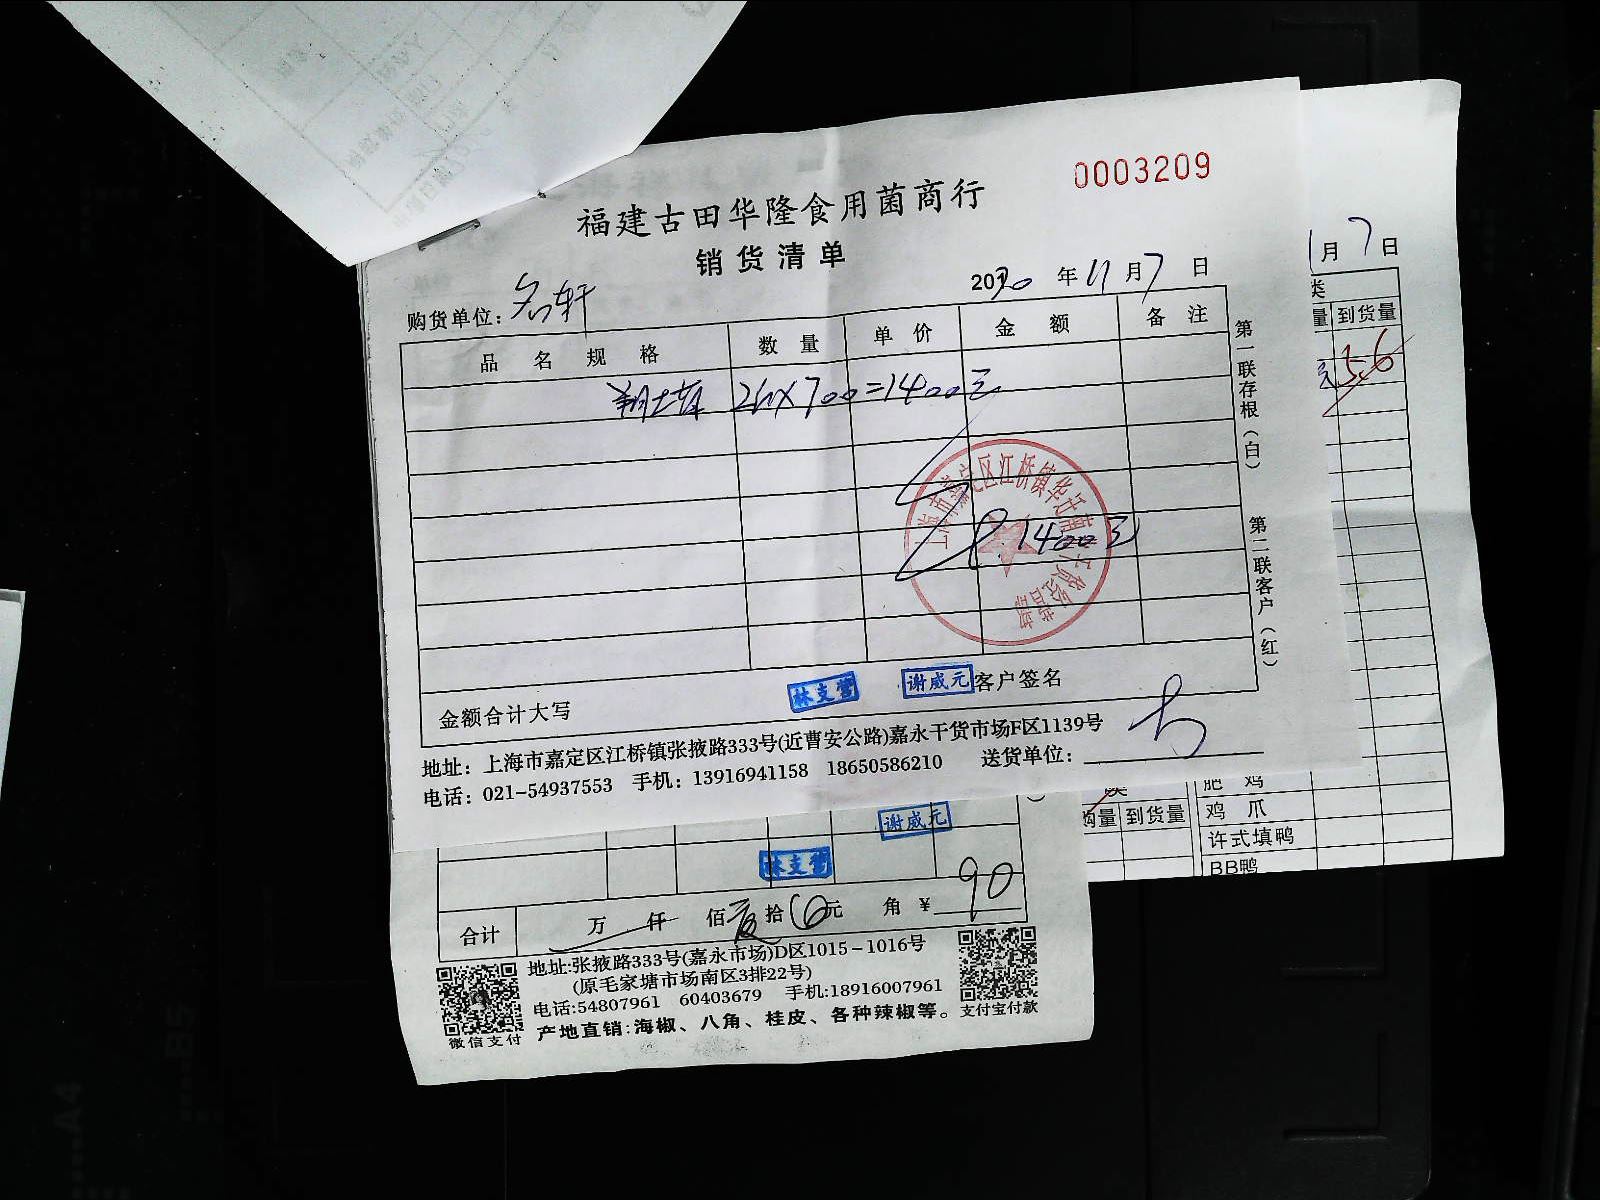 0003209
福建古田华隆食用菌商行
销货清单
购货单位：名轩
2020 年 11 月 7 日
品名规格 数量 单价 金额 备注
2件×700=1400元
1400元
第一联存根（白） 第二联客户（红）
金额合计大写
林支营 谢威元 客户签名
地址：上海市嘉定区江桥镇张掖路333号(近曹安公路)嘉永干货市场F区1139号
电话：021-54937553 手机：13916941158 18650586210 送货单位：
月 7 日
类
量 到货量
5.6
购量 到货量
肥鸡
鸡爪
许式填鸭
BB鸭
谢威元
林支营
合计 万 仟 佰 拾 元 角 ¥ 90
地址:张掖路333号(嘉永市场)D区1015-1016号
(原毛家塘市场南区3排22号)
电话:54807961 60403679 手机:18916007961
产地直销:海椒、八角、桂皮、各种辣椒等。
微信支付
支付宝付款